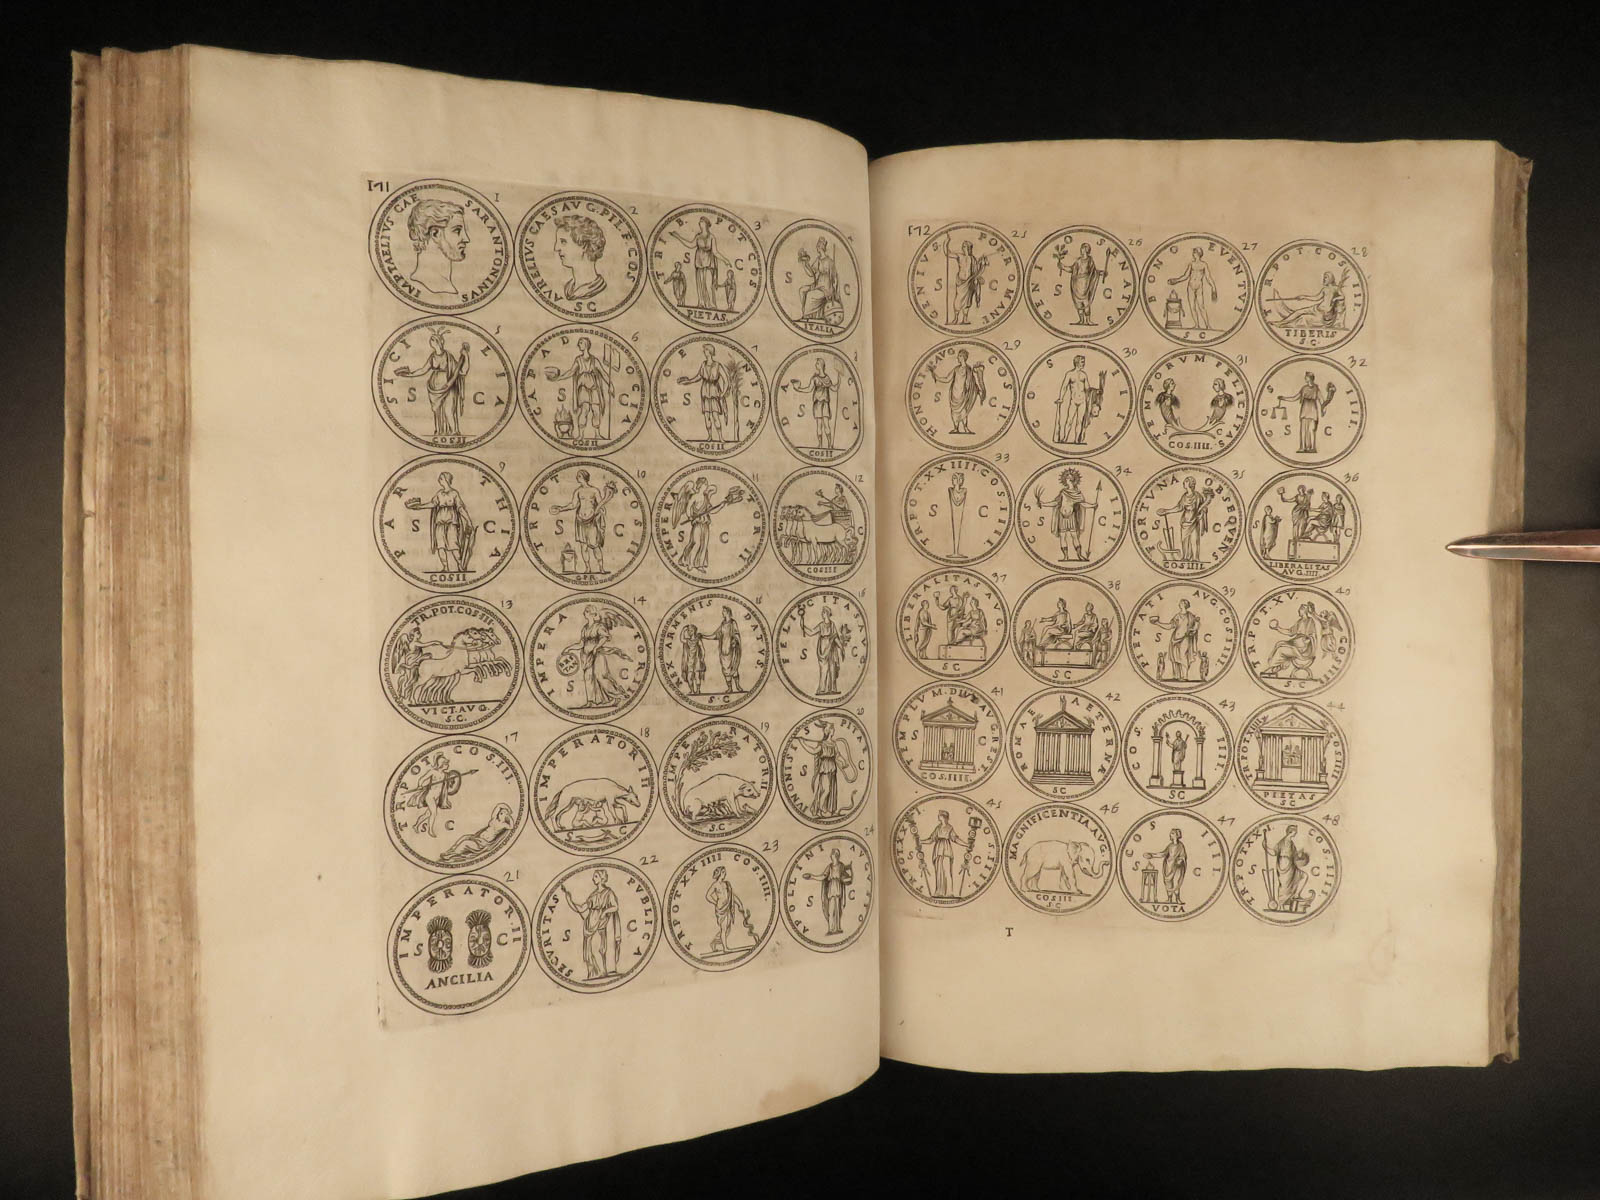 171
1
IMP T AELIVS CAE SAR ANTONINVS
2
AVRELIVS CAES AVG. PII. F. COS
S C
3
TRIB. POT COS
S C
PIETAS.
S C
ITALIA
5
SICI LIA
S C
COS II
6
CAPAD OCIA
S C
COS II
7
PHOE NICE
S C
COS II
8
DA CIA
S C
COS II
9
PAR THIA
S C
COS II
10
TR POT COS II
S C
G P R
11
IMPERA TOR II
S C
12
S C
COS III
13
TR. POT. COS III.
VICT. AVG.
S. C.
14
IMPERA TOR II
BRI TAN
S C
15
REX ARMENIS DATVS.
S C
16
FELICITAS AVG
S C
17
TR POT COS. III.
S C
18
IMPERATOR II
S C
19
IMPE RATOR II
S. C
20
IVNONI SISPITAE
S C
21
IMPERATOR. II
S C
ANCILIA
22
SECVRITAS PVBLICA
S C
23
TR POT XXIIII COS. IIII.
24
APOLLINI AVGVSTO
S C
172
25
GENIVS. POP. ROMANI
S C
26
GENIO SENATVS
S C
27
BONO EVENTVI
S C
28
TR POT. COS III.
TIBERIS
S C.
29
HONORI AVG COS II.
S C
30
COS IIII
31
TEMPORVM FELICITAS
S C
COS. IIII.
32
COS IIII.
S C
33
TR POT. XXIIII. COS IIII
S C
34
COS IIII.
S C
35
FORTVNA OBSEQVENS
S C
COS IIII.
36
S C
LIBERALITAS
AVG. IIII.
37
LIBERALITAS AVG.
S C
38
S C
39
PIETATI AVG COS IIII
S C
40
TR POT. XV. COS IIII
S C
41
TEMPLVM. DIVI AVG REST.
S C
COS. IIII.
42
ROMAE AETERNAE
S C
43
COS. IIII
S C
44
TR POT XXIIII COS IIII
PIETAS
S C
45
TR POT XXI. COS. IIII
S C
46
MAGNIFICENTIA AVG.
COS IIII
S C
47
COS IIII.
S C
VOTA
48
TR POT XXI. COS. IIII.
S C
T